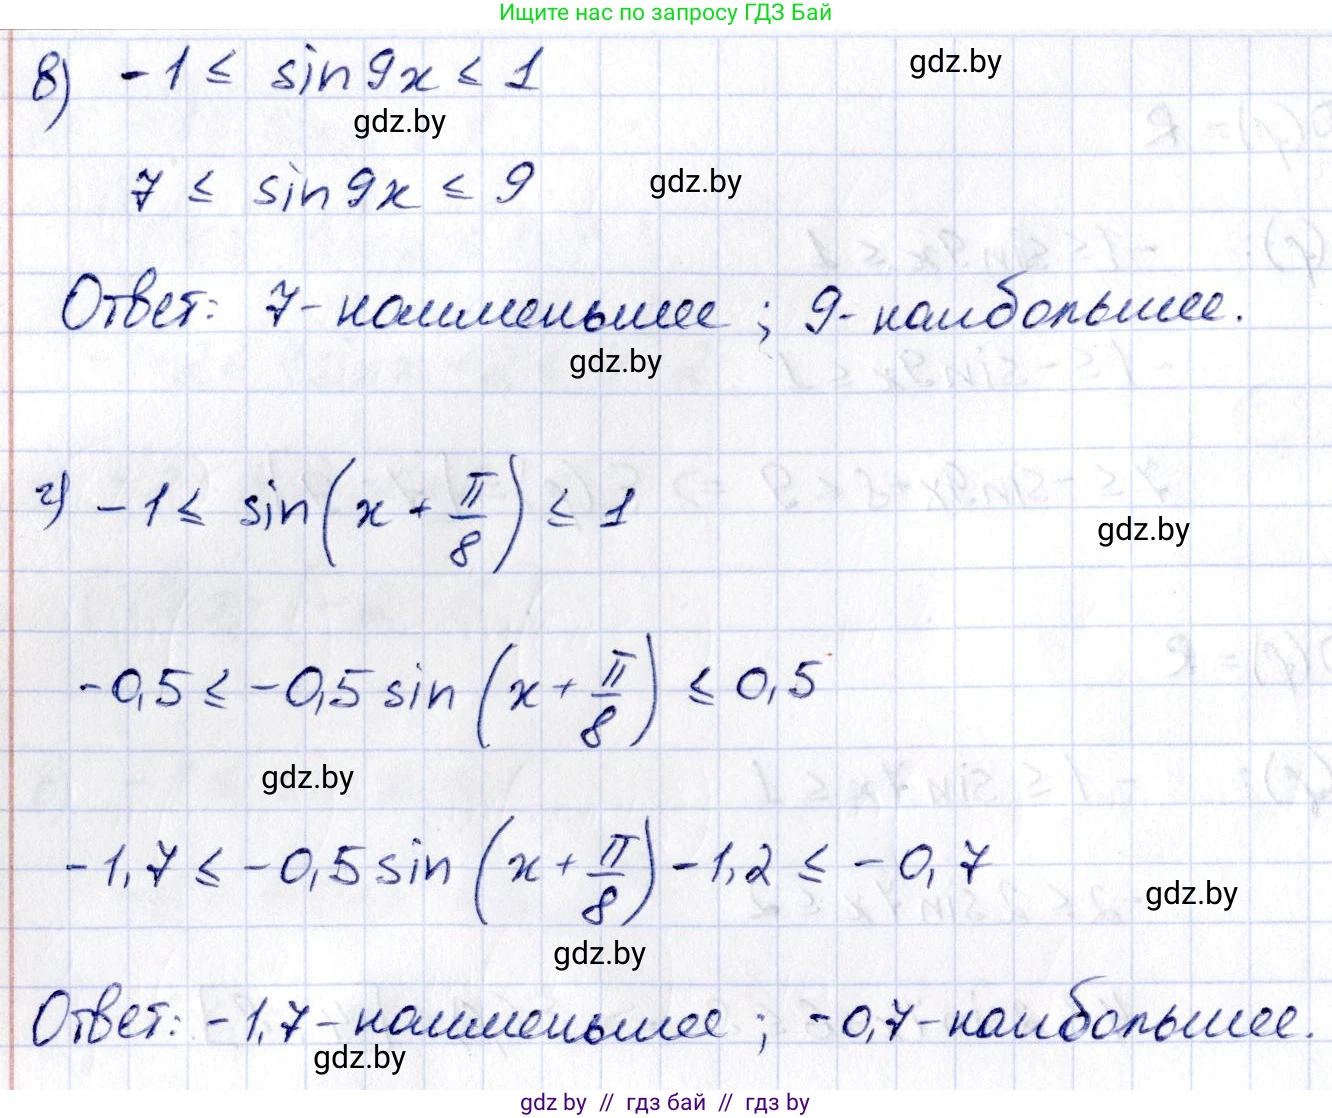 Ищите нас по запросу ГДЗ Бай
в) -1 ≤ sin9x ≤ 1
gdz.by
gdz.by
7 ≤ sin9x ≤ 9
gdz.by
Ответ: 7- наименьшее ; 9- наибольшее.
gdz.by
г) -1 ≤ sin(x + π/8) ≤ 1
gdz.by
-0,5 ≤ -0,5 sin(x + π/8) ≤ 0,5
gdz.by
-1,7 ≤ -0,5 sin(x + π/8) -1,2 ≤ -0,7
gdz.by
gdz.by
Ответ: -1,7- наименьшее ; -0,7- наибольшее.
gdz.by
gdz by // гдз бай // гдз by